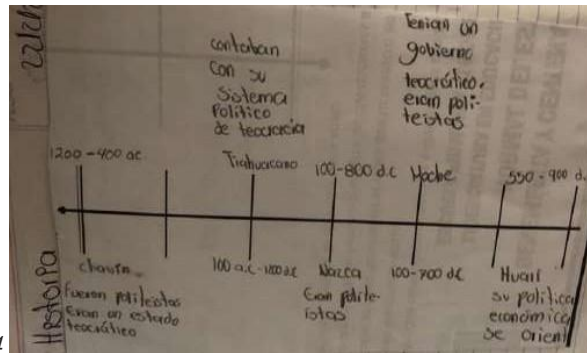 22/2/
contaban
con su
Sistema
Político
de teocracia
Tenian un
gobierno
teocrático.
eran poli-
teístas
1200-400 ac.
Tiahuacano
100-800 d.C
Moche
550-900 d.
chavín.
fueron politeístas
Eran un estado
teocrático
100 a.C-1200 d.C
Nazca
Eran polite-
ístas
100-700 dC
Huari
su política
económica
se orient
Historia